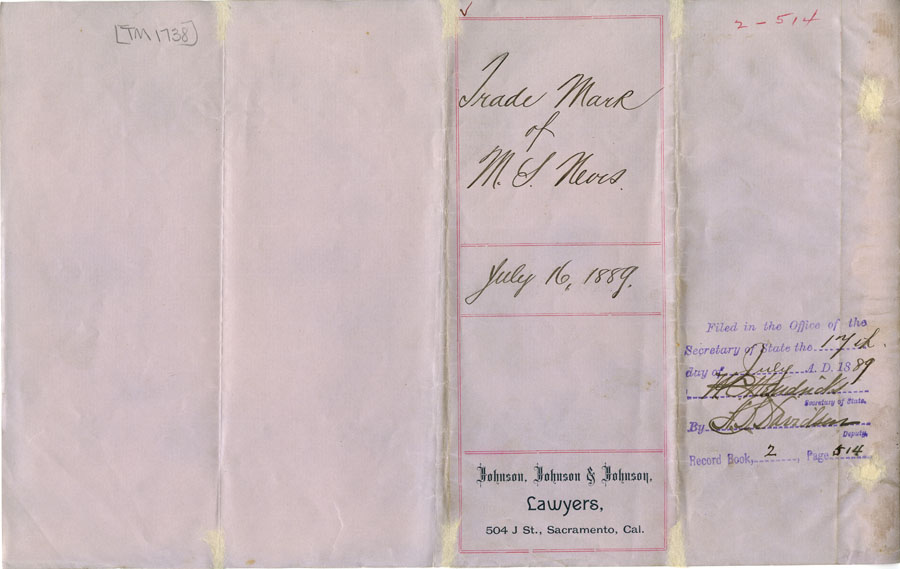 [TM 1738]
2-514
Trade Mark
of
M. S. Neves.
July 16, 1889.
Johnson, Johnson & Johnson,
Lawyers,
504 J St., Sacramento, Cal.
Filed in the Office of the
Secretary of State the 17th
day of July A. D. 1889
W C Hendricks
Secretary of State.
By Davidson
Deputy.
Record Book, 2, Page 514